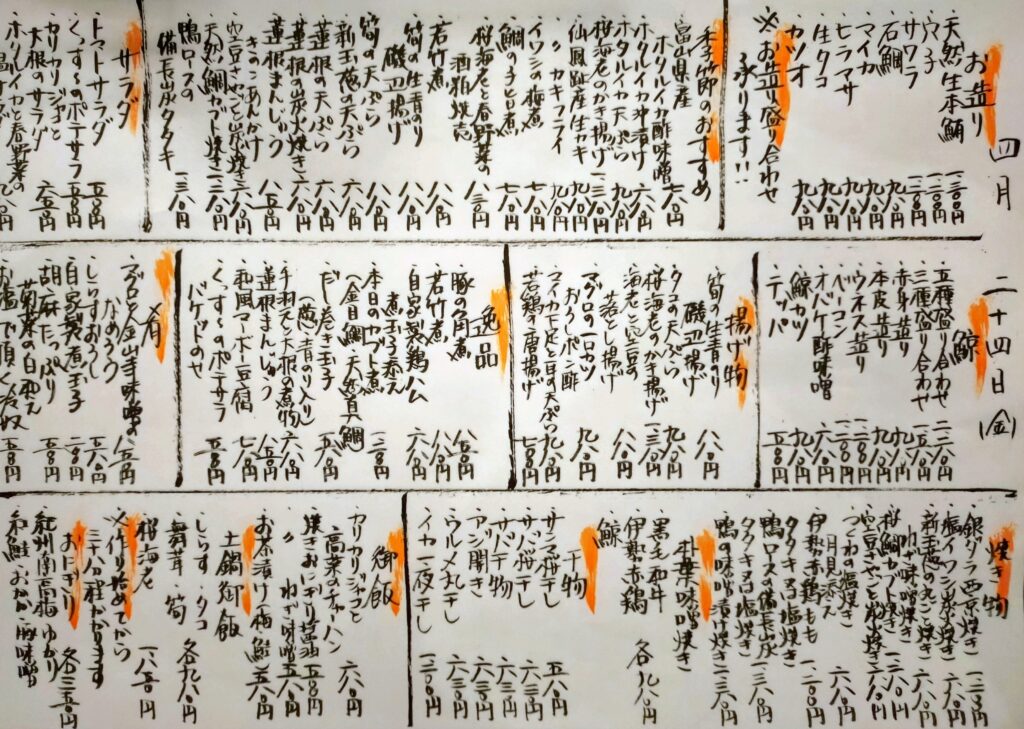 四月 二十四日(金)
お造り
天然生本鮪 一三〇〇円
ウニ 一二〇〇円
サワラ 一一〇〇円
石鯛 九八〇円
マイカ 九八〇円
ヒラマサ 九八〇円
生タコ 九八〇円
カツオ 九八〇円
※お造り盛り合わせ
承ります!!
季節のおすすめ
富山県産
ホタルイカ酢味噌 七八〇円
ホタルイカ沖漬け 六八〇円
ホタルイカ天ぷら 九八〇円
桜海老のかき揚げ 一三八〇円
仙鳳趾産生カキ 九八〇円
〃 カキフライ 九八〇円
イワシの梅煮 七八〇円
鯛の子ヒロ煮 七八〇円
桜海老と春野菜の
酒粕焼き 八三〇円
若竹煮 八八〇円
筍の生青のり
磯辺揚げ 八八〇円
筍の天ぷら 八八〇円
新玉葱の天ぷら 六八〇円
蓮根の天ぷら 六八〇円
蓮根の炭火焼き 六八〇円
蓮根まんじゅう
きのこあんかけ 八五〇円
空豆さやごと炭焼き 六八〇円
天然鯛カブト焼き 一二八〇円
鴨ロースの
備長炭タタキ 一三八〇円
サラダ
トマトサラダ 五八〇円
くずし〜のポテサラ 五五〇円
カリカリジャコと
大根のサラダ 六五〇円
ホタルイカと春野菜の
鯨
五種盛り合わせ 二二八〇円
三種盛り合わせ 一五八〇円
赤身造り 九八〇円
本皮造り 九八〇円
ウネス造り 一二八〇円
ベーコン 一二八〇円
オバケ酢味噌 六八〇円
鯨カツ 九八〇円
テッパ 五八〇円
揚げ物
筍の生青のり
磯辺揚げ 八八〇円
タコの天ぷら 九八〇円
桜海老のかき揚げ 一三八〇円
海老と空豆の
落とし揚げ 八八〇円
マグロの一口カツ
おろしポン酢 九八〇円
マイカ下足と目の天ぷら 九八〇円
若鶏の唐揚げ 七五〇円
逸品
豚の角煮 八五〇円
若竹煮 八八〇円
煮玉子添え
自家製鶏ハム 六八〇円
本日のカブト煮
(金目鯛・天然真鯛) 一二八〇円
だし巻き玉子
(葱・青のり入り) 五八〇円
手羽元と大根の煮物 六八〇円
蓮根まんじゅう 八五〇円
和風マーボー豆腐 七八〇円
くずし〜のポテサラ
バケットのせ 五五〇円
肴
マグロと金山寺味噌の
なめろう 八五〇円
しらすおろし 五八〇円
自家製煮玉子 二八〇円
胡麻たっぷり
菊菜の白和え 五五〇円
お箸で頂く冷奴 五五〇円
焼き物
銀ダラ西京焼き 一二八〇円
塩イワシ炭火焼き 六八〇円
新玉葱の丸ごと焼き
ねぎ味噌焼き 六八〇円
桜鯛カブト焼き 一二八〇円
空豆さやごと炭焼き 六八〇円
つくねの塩焼き
(月見添え) 八八〇円
伊勢赤鶏もも
タタキ・又は塩焼き 一二〇〇円
鴨ロースの備長炭
タタキ・又は塩焼き 一三八〇円
鴨の味噌漬け焼き 一三八〇円
朴葉味噌焼き
黒毛和牛
伊勢赤鶏 各九八〇円
鯨
干物
サンマ桜干し 五八〇円
サバ桜干し 六三〇円
サバ干物 六三〇円
アジ開き 六三〇円
ウルメ丸干し 六三〇円
イカ一夜干し 一二〇〇円
御飯
カリカリジャコと
高菜のチャーハン 六八〇円
焼きおにぎり醤油 五五〇円
〃 ねぎ味噌 五八〇円
お茶漬け(梅・鮭) 各五八〇円
土鍋御飯
しらす・タコ
舞茸・筍 各九八〇円
桜海老 一八五〇円
※作り始めてから
三十八程かかります
おにぎり 各三五〇円
紀州南高梅・ゆかり
和鮭・おかか・豚味噌